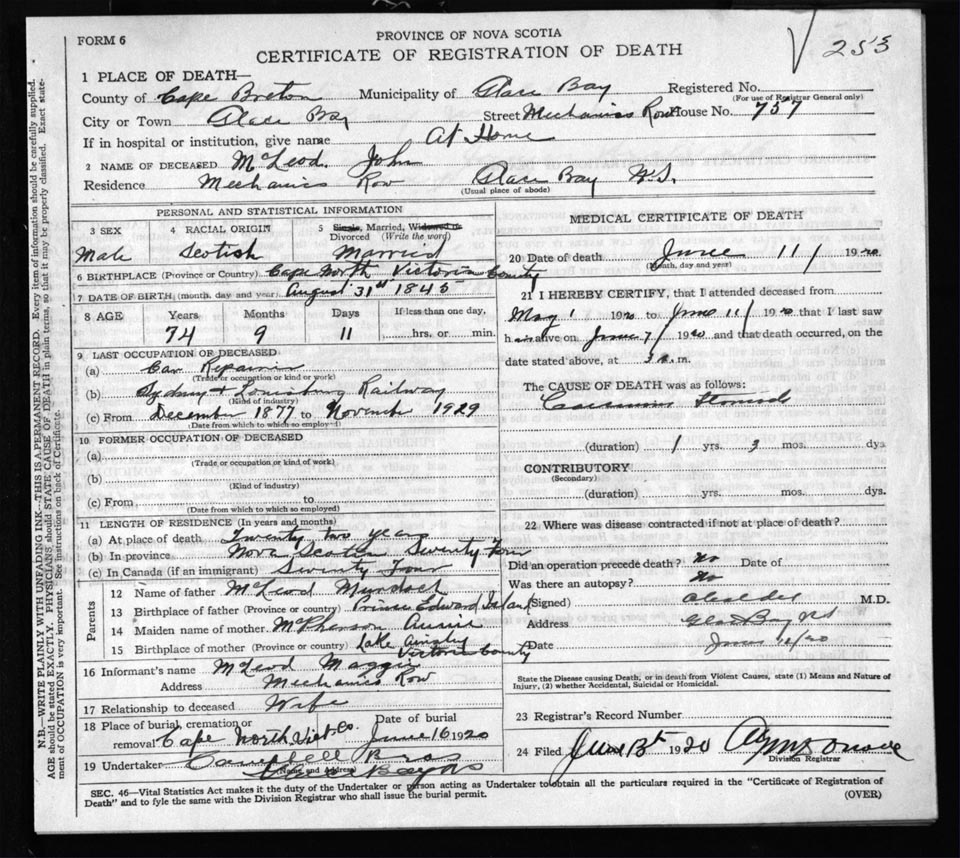 FORM 6
PROVINCE OF NOVA SCOTIA
CERTIFICATE OF REGISTRATION OF DEATH
253
1 PLACE OF DEATH—
County of Cape Breton Municipality of Glace Bay Registered No.
(For use of Registrar General only)
City or Town Glace Bay Street Mechanics Row House No. 757
If in hospital or institution, give name At Home
2 NAME OF DECEASED McLeod John
Residence Mechanics Row Glace Bay N.S.
(Usual place of abode)
PERSONAL AND STATISTICAL INFORMATION
3 SEX 4 RACIAL ORIGIN 5 Single, Married, Widowed or Divorced (Write the word)
Male Scotish Married
6 BIRTHPLACE (Province or Country) Cape North Victoria County
7 DATE OF BIRTH (month, day and year) August 31st 1845
8 AGE Years Months Days If less than one day,
74 9 11 hrs. or min.
9 LAST OCCUPATION OF DECEASED
(a) Car Repairer
(Trade or occupation or kind of work)
(b) Sydney & Louisburg Railway
(Kind of industry)
(c) From December 1877 to November 1929
(Date from which to which so employed)
10 FORMER OCCUPATION OF DECEASED
(a)
(Trade or occupation or kind of work)
(b)
(Kind of industry)
(c) From to
(Date from which to which so employed)
11 LENGTH OF RESIDENCE (In years and months)
(a) At place of death Twenty two years
(b) In province Nova Scotia Seventy Four
(c) In Canada (if an immigrant) Seventy Four
Parents
12 Name of father McLeod Murdoch
13 Birthplace of father (Province or country) Prince Edward Island
14 Maiden name of mother McPherson Annie
15 Birthplace of mother (Province or country) Lake Ainsly Victoria County
16 Informant's name McLeod Maggie
Address Mechanics Row
17 Relationship to deceased Wife
18 Place of burial, cremation or removal Cape North Vict Co. Date of burial June 16 1920
19 Undertaker Bros
(Name and address) Bay NS
MEDICAL CERTIFICATE OF DEATH
20 Date of death June 11 1920
(Month, day and year)
21 I HEREBY CERTIFY, that I attended deceased from
May 1 1920 to June 11 1920 that I last saw
him alive on June 7 1920 and that death occurred, on the
date stated above, at 3 a.m.
The CAUSE OF DEATH was as follows:
Stomach
(duration) 1 yrs. 3 mos. dys.
CONTRIBUTORY
(Secondary)
(duration) yrs. mos. dys.
22 Where was disease contracted if not at place of death?
Did an operation precede death? No Date of
Was there an autopsy? No
(Signed) M.D.
Address Glace Bay NS
Date June 12/20
State the Disease causing Death, or in death from Violent Causes, state (1) Means and Nature of
Injury, (2) whether Accidental, Suicidal or Homicidal.
23 Registrar's Record Number
24 Filed June 13th 1920
Division Registrar
SEC. 46—Vital Statistics Act makes it the duty of the Undertaker or person acting as Undertaker to obtain all the particulars required in the "Certificate of Registration of
Death" and to fyle the same with the Division Registrar who shall issue the burial permit.
(OVER)
N.B.—WRITE PLAINLY WITH UNFADING INK—THIS IS A PERMANENT RECORD. Every item of information should be carefully supplied.
AGE should be stated EXACTLY. PHYSICIANS should STATE CAUSE OF DEATH in plain terms, so that it may be properly classified. Exact state-
ment of OCCUPATION is very important. See instructions on back of Certificate.